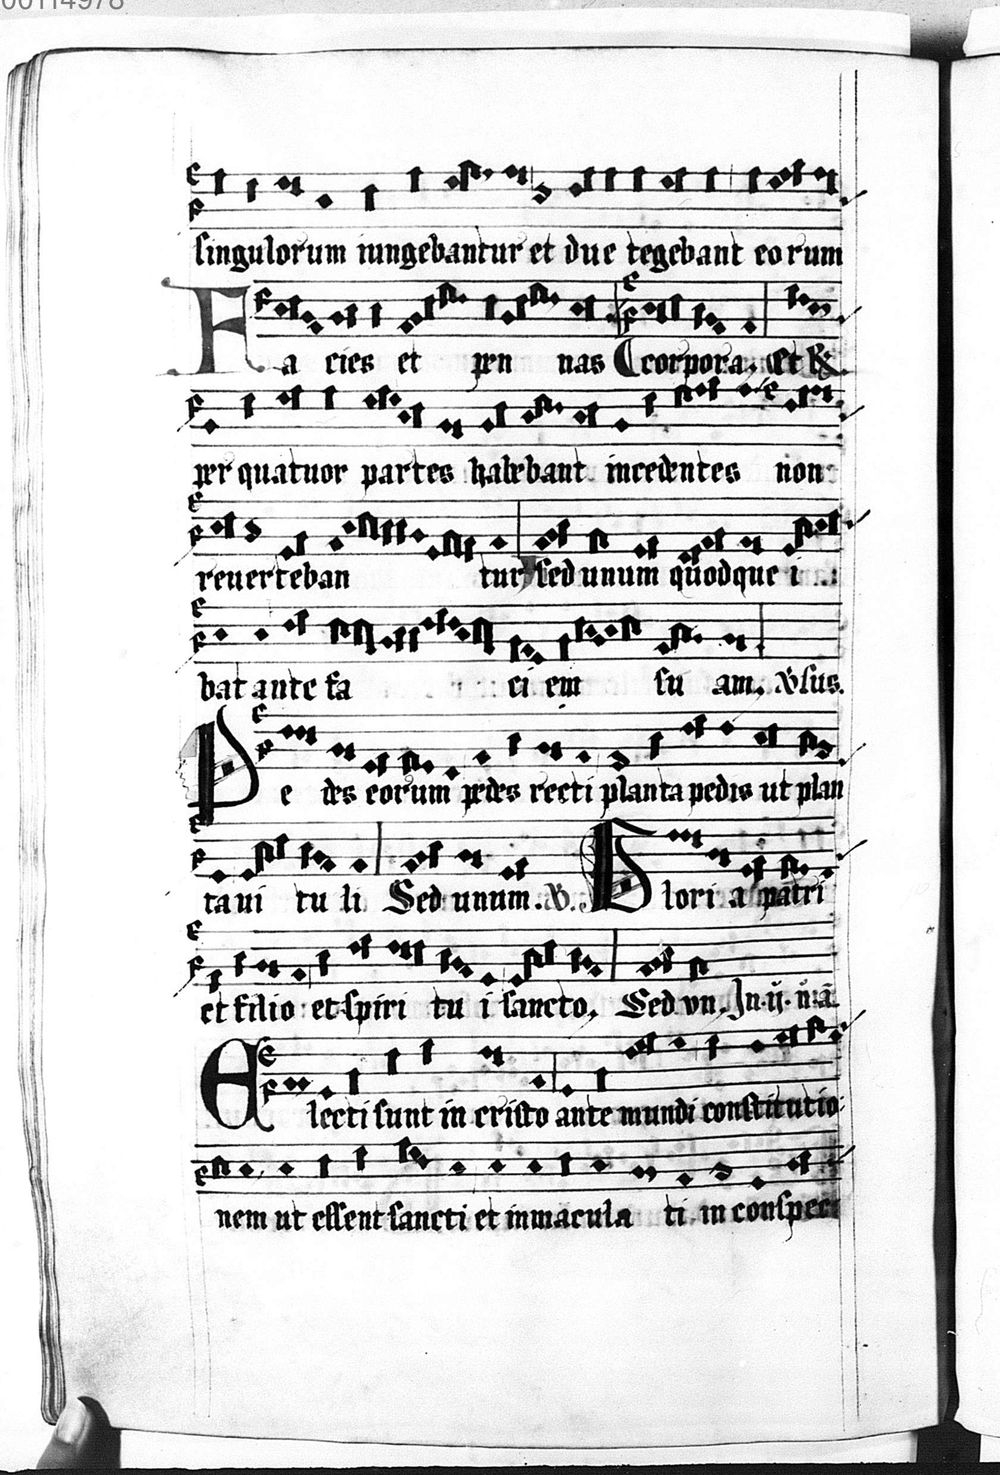 00114978
singulorum iungebantur et due tegebant eorum
Facies et pennas corpora. Et R
per quatuor partes habebant incedentes non
reuerteban tur sed unum quodque i
bat ante fa ci em su am. Vsus.
Pedes eorum pedes recti planta pedis ut plan
ta ui tu li Sed unum. V. Glori a patri
et filio et spiri tu i sancto. Sed vn. In .ij. n̄.
Electi sunt in cristo ante mundi constitutio
nem ut essent sancti et inmacula ti in conspec